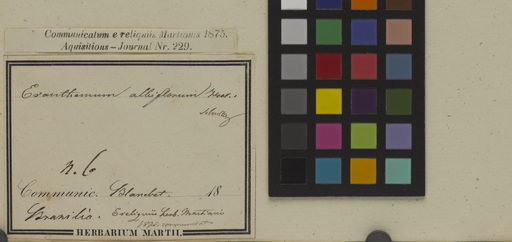 Communicatum e reliquiis Martianis 1875.
Aquisitions – Journal Nr. 229.
Eranthemum albiflorum Hook.
n. 6
Communic. Blanchet. 18
Brasilia. E reliquiis herb. Martiano
1875. communicat
HERBARIUM MARTII.